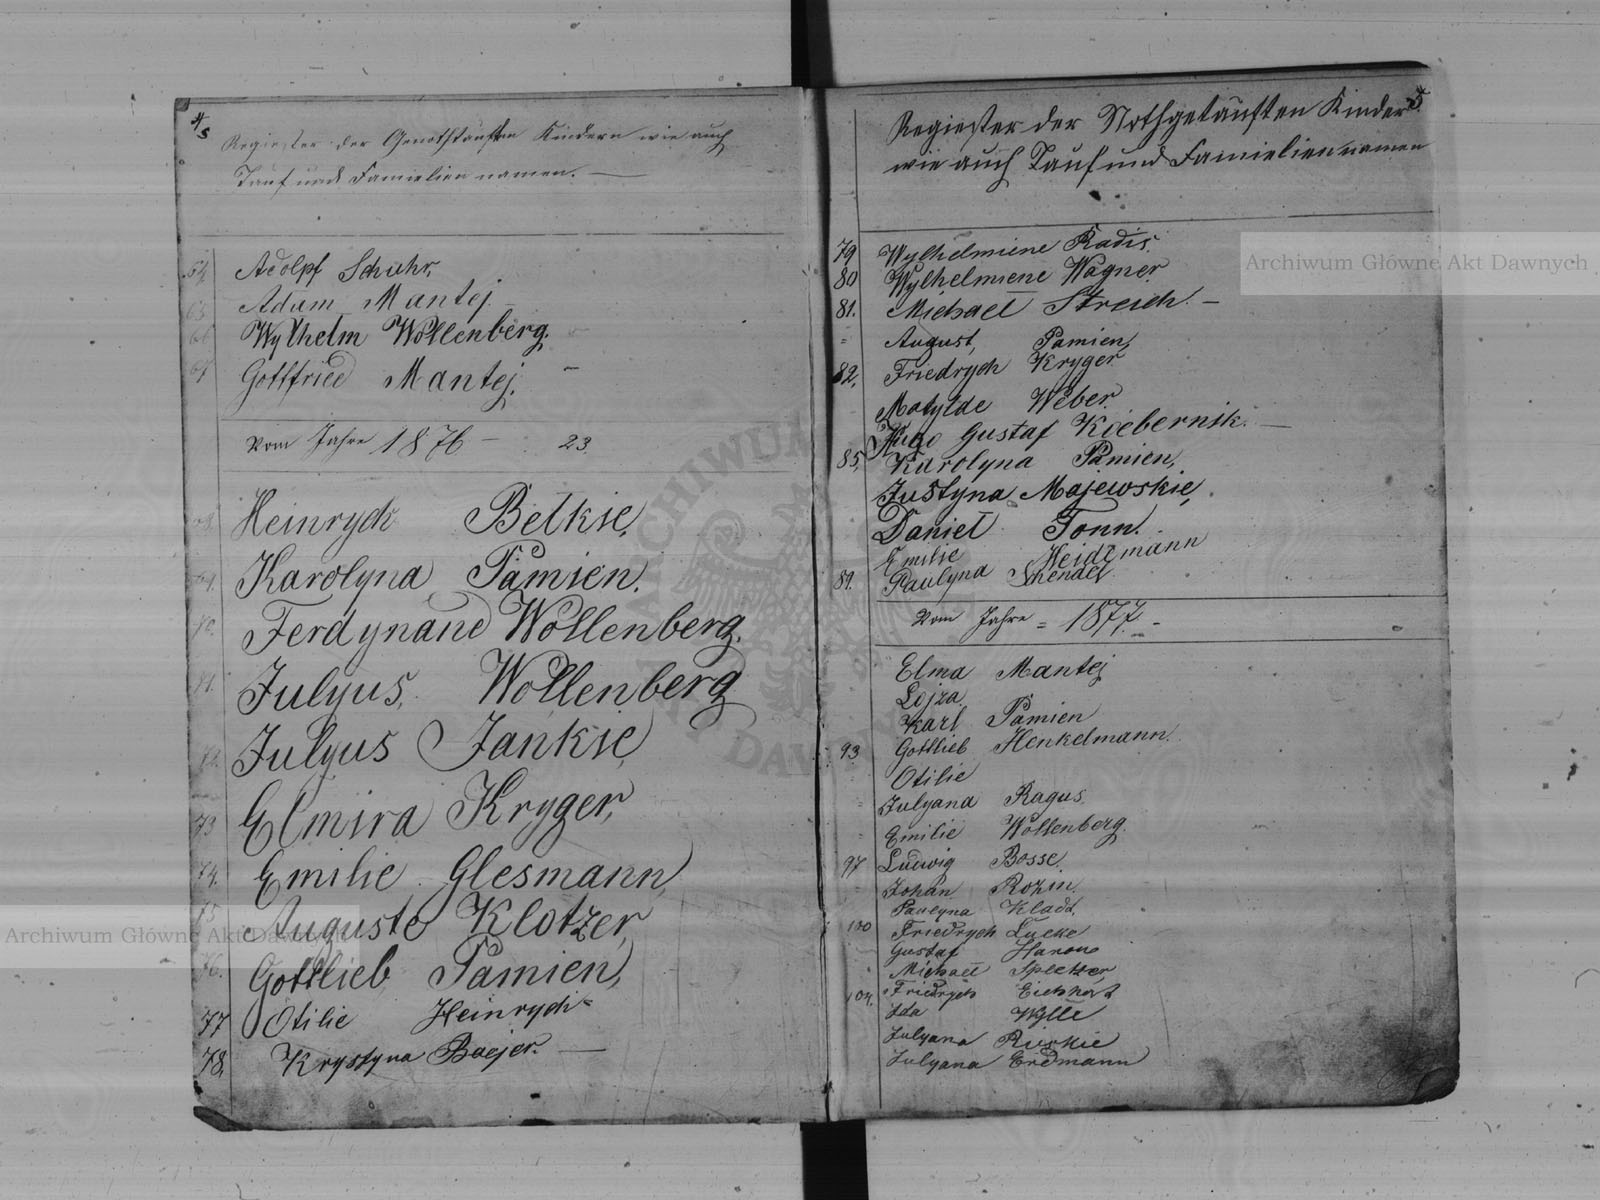 4/5
Regiester der Genothtauften Kindern wie auch
Tauf und Famielien namen. —
64. Adolpf Schuhr,
65. Adam Mantej. —
66. Wylhelm Wollenberg.
67. Gottfried Mantej. —
Vom Jahre 1876 — 23.
68. Heinrych Belkie,
69. Karolyna Pamien.
70. Ferdynand Wollenberg.
71. Julyus, Wollenberg
72. Julyus Jankie,
73 Elmira Kryger,
74. Emilie Glesmann,
75 Auguste Klotzer,
76. Gottlieb Pamien,
77 Otilie Heinrych
78. Krystyna Baejer. —
5.
Regiester der Nothgetauften Kinder
wie auch Tauf und Famielien namen
79 Wylhelmiene Radis
80 Wylhelmiene Wagner
81. Michael Streich. —
= August, Pamien,
82. Friedrych Kryger
Matylde Weber.
Hugo Gustaf Koebernik. —
85. Karolyna Pamien,
Justyna Majewskie,
Daniel Tonn.
Emilie Heidzmann
89. Paulyna Shendel
Vom Jahre = 1877. —
Elma Mantej
Lojza
Karl Pamien
93 Gottlieb Henkelmann.
Otilie
Julyana Ragus.
Emilie Wollenberg.
97 Ludwig Bosse.
Johan Rozin.
Paulyna Kladt.
100 Friedrych Lucke
Gustaf
Michael Spletzer,
104. Friedrych Eichhorst
Ida Wylle
Julyana
Julyana Erdmann
Archiwum Główne Akt Dawnych
Archiwum Główne Akt Dawnych
ARCHIWUM